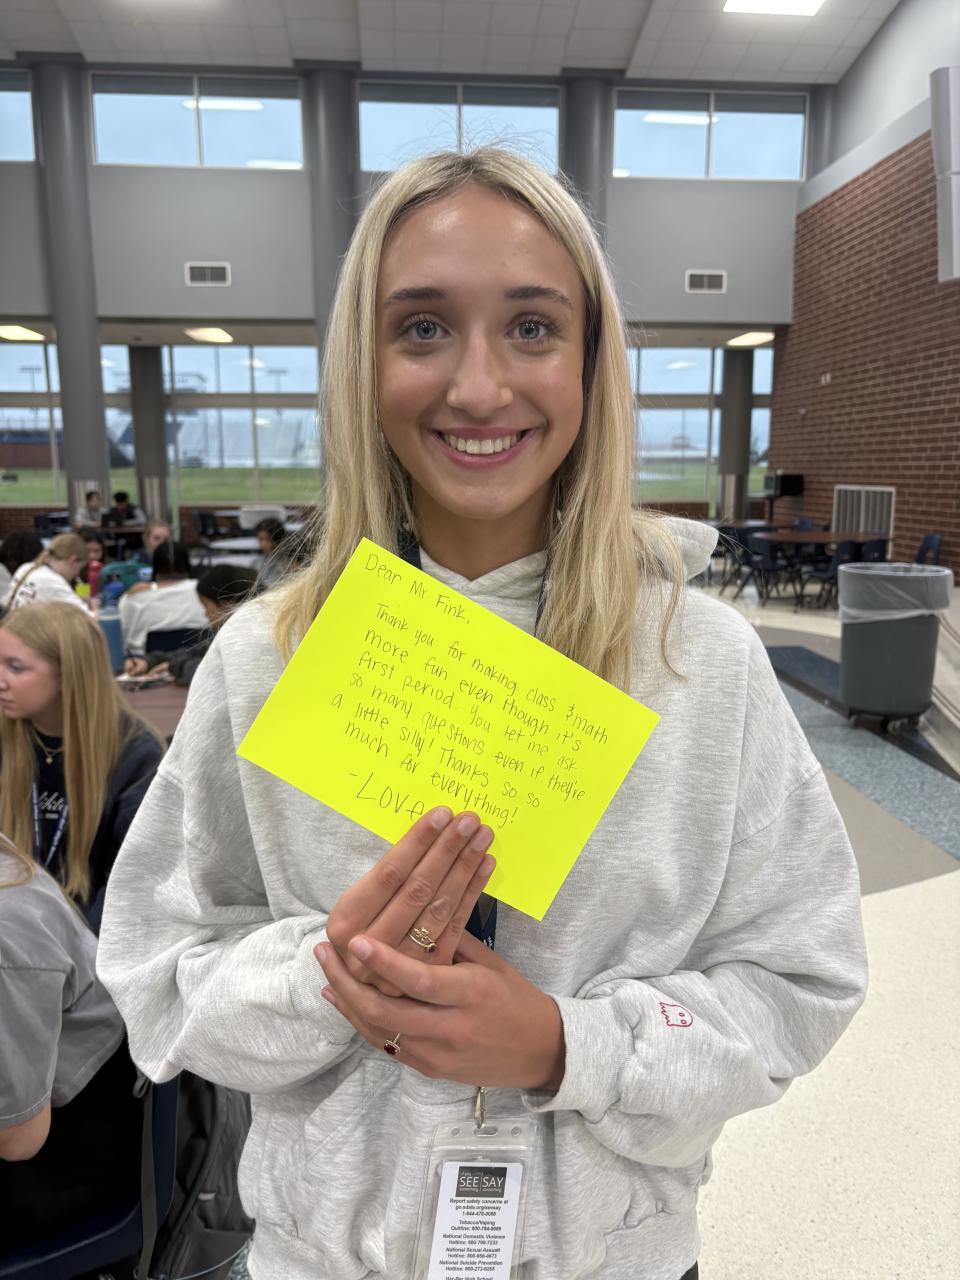 Dear Mr. Fink,
Thank you for making class & math
more fun even though it's
first period. You let me ask
so many questions even if they're
a little silly! Thanks so so
much for everything!
-Love
SEE SAY
Report safety concerns at
1-844-470-0088
Tobacco/Vaping
Quitline: 800-784-8669
National Domestic Violence
Hotline: 800-799-7233
National Sexual Assault
Hotline: 800-656-4673
National Suicide Prevention
Hotline: 800-273-8255
Har-Ber High School